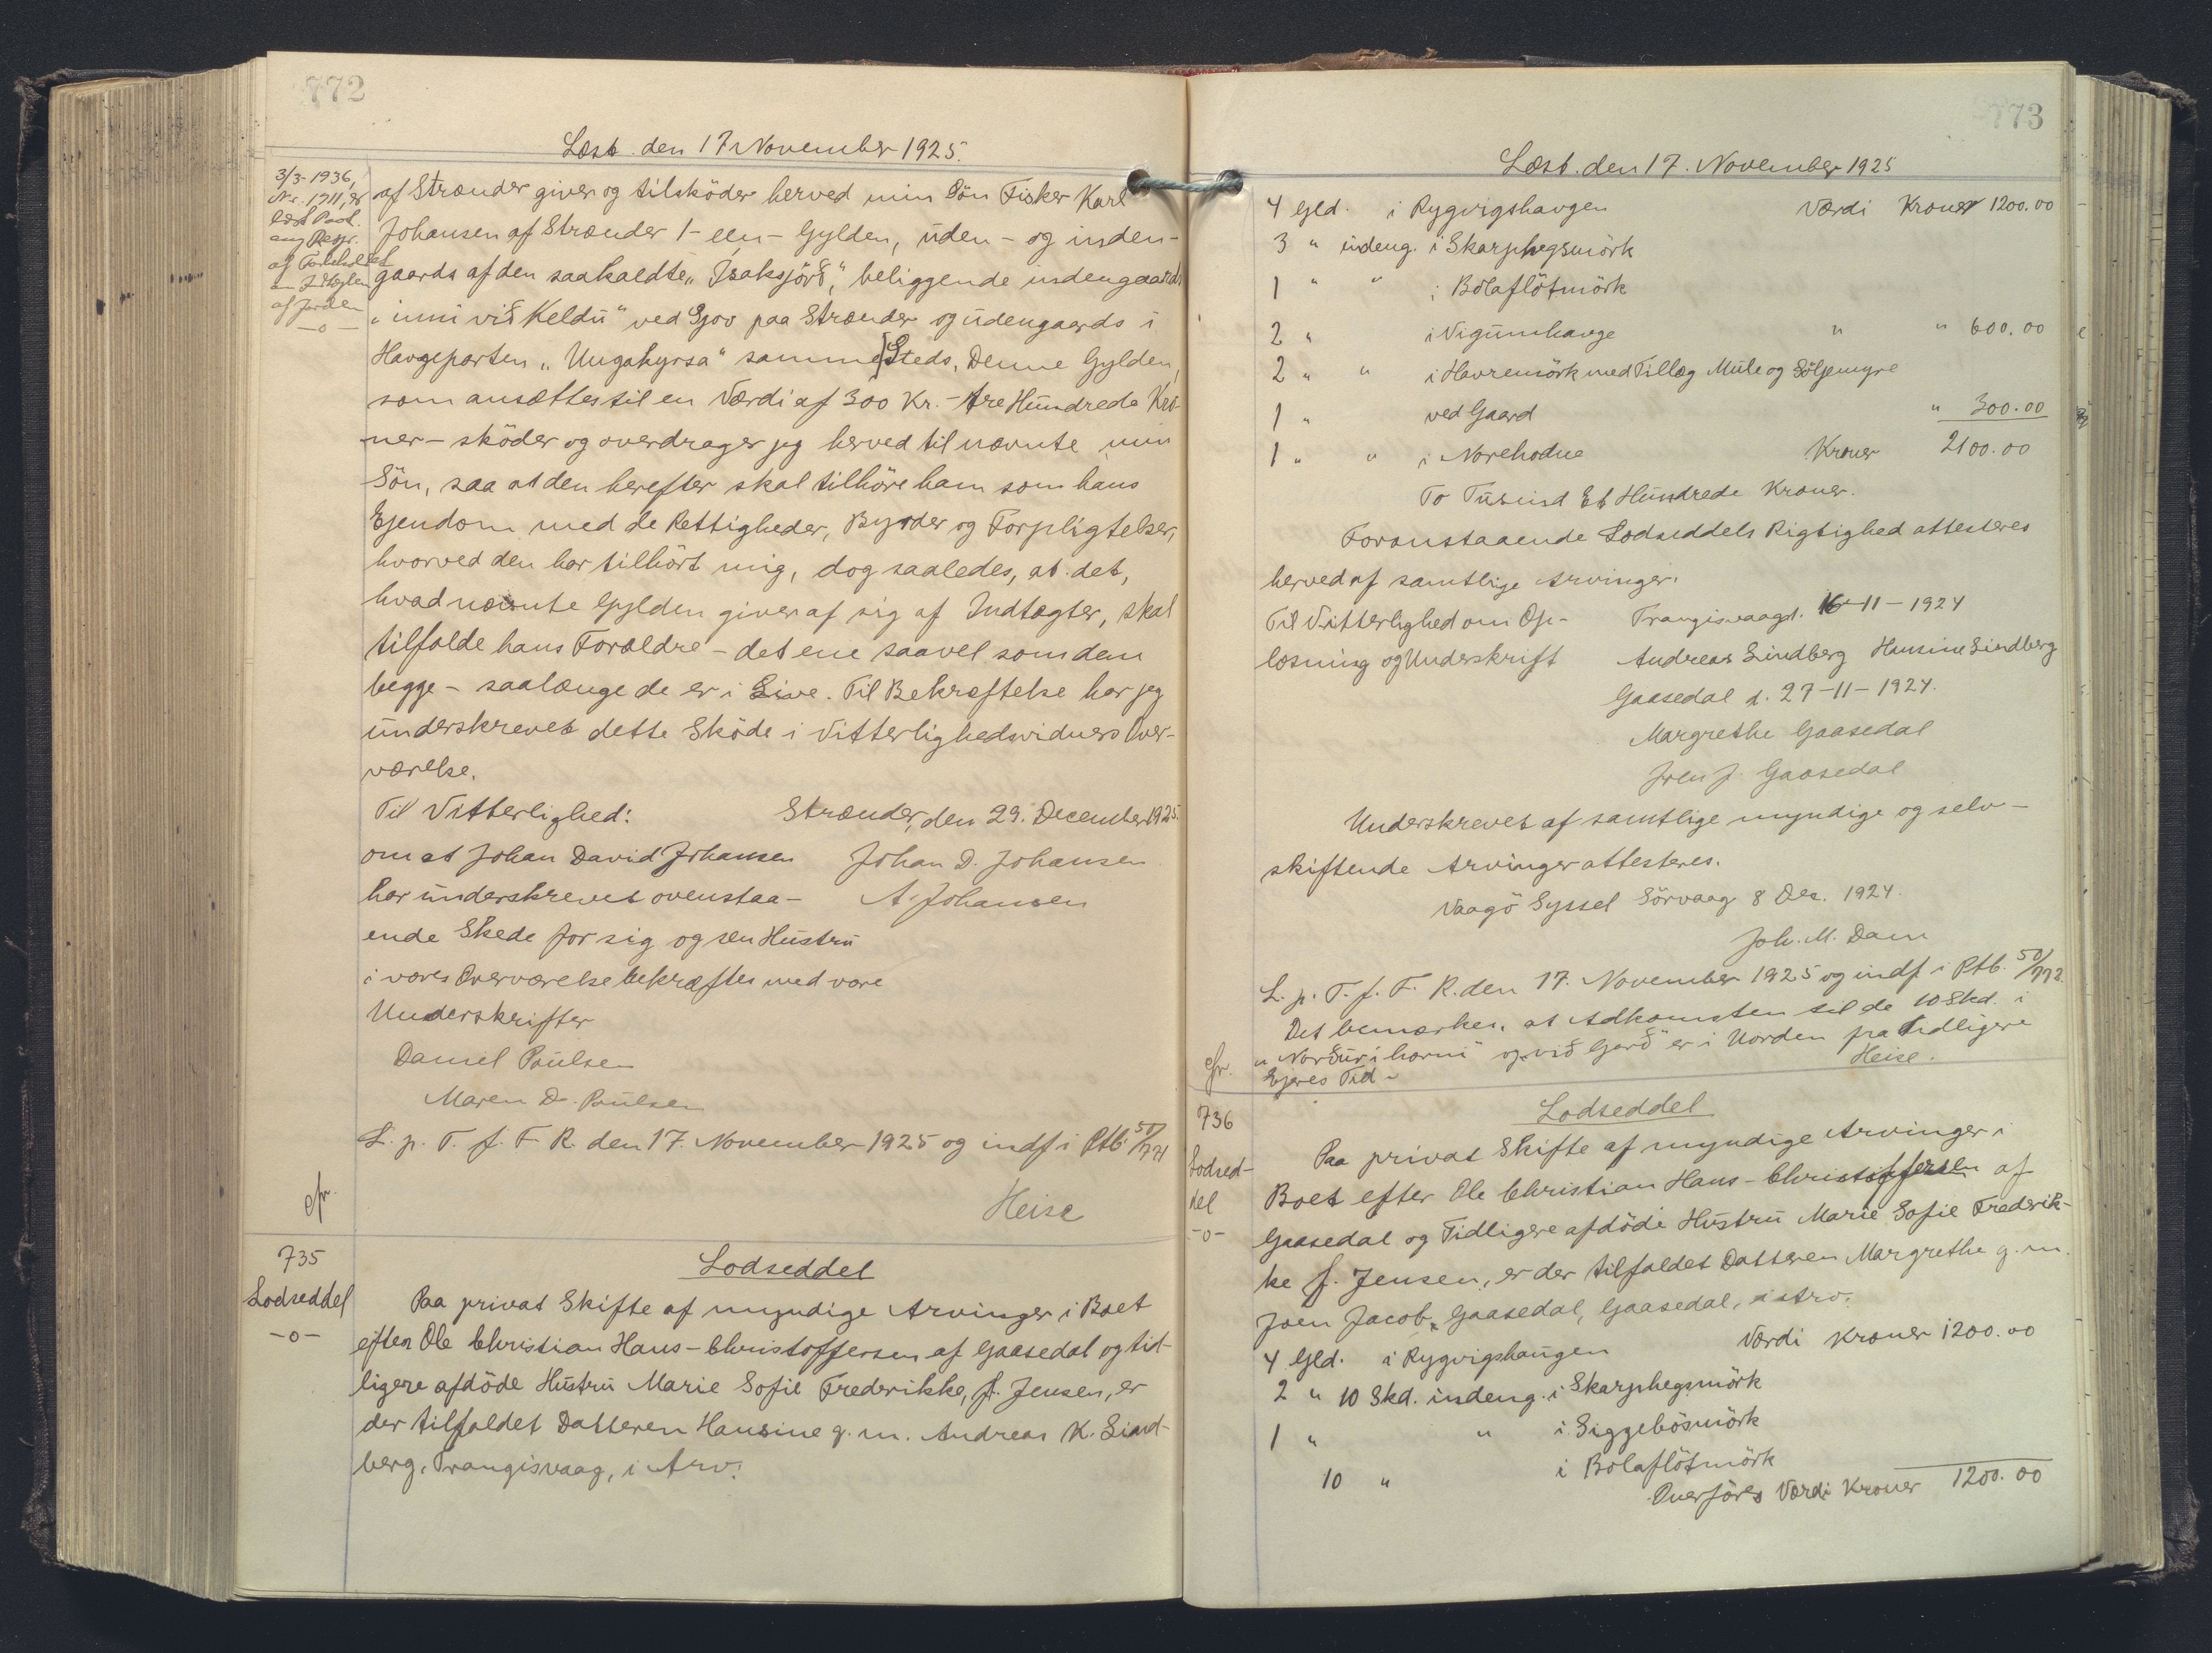 772
Læst den 17 November 1925.
3/3-1936,
Nr. 1711, er
læst Paat.
ang Resp.
af Forbeholdet
om Indtægten
af Jorden
-o-
af Strænder giver og tilsköder herved min Sön Fisker Karl
Johansen af Strænder 1- een - Gylden, uden - og inden-
gaards af den saakaldte „Isaksjörð," beliggende indengaards
„inni við Keldu" ved Gjov paa Strænder og udengaards i
Haugeparten „Ungahyrsa" samme Steds, Denne Gylden,
som ansættes til en Værdi af 300 Kr. - tre Hundrede Kro-
ner - sköder og overdrager jeg herved til nævnte min
Sön, saa at den herefter skal tilhöre ham som hans
Ejendom med de Rettigheder, Byrder og Forpligtelser,
hvorved den har tilhört mig, dog saaledes, at det,
hvad nævnte Gylden giver af sig af Indtægter, skal
tilfalde hans Forældre - det ene saavel som dem
begge - saalænge de er i Live. Til Bekræftelse har jeg
underskrevet dette Sköde i Vitterlighedsvidners Over-
værelse.
Til Vitterlighed: Strænder, den 29. December 1925.
om at Johan David Johansen Johan D. Johansen
har underskrevet ovenstaa- A. Johansen
ende Skede for sig og sen Hustru
i vores Overværelse bekræftes med vore
Underskrifter
Daniel Poulsen
Maren D. Poulsen
L. p. T. f. F. R. den 17. November 1925 og indf i Ptb. 50/771
cfr. Heise
735
Lodseddel
-o-
Lodseddel
Paa privat Skifte af myndige Arvinger i Boet
efter Ole Christian Hans - Christoffersen af Gaasedal og tid-
ligere afdöde Hustru Marie Sofie Frederikke, f. Jensen, er
der tilfaldet Datteren Hansine g. m. Andreas K. Lind-
berg, Trangisvaag, i Arv:
773
Læst den 17. November 1925
4 Gld. i Rygvigshavgen Værdi Kroner 1200.00
3 " indeng. i Skarphegsmörk
1 " " i Bolaflötmörk
2 " i Vigumhauge " " 600.00
2 " " i Havremörk med Tillæg Mule og Söljemyre
1 " ved Gaard " 300.00
1 " " i Norehodne Kroner 2100.00
To Tusind Et Hundrede Kroner.
Foranstaaende Lodseddels Rigtighed attesteres
herved af samtlige Arvinger.
Til Vitterlighed om Op- Trangisvaag d. 16-11-1924
læsning og Underskrift Andreas Lindberg Hansine Lindberg
Gaasedal d. 27-11-1924.
Margrethe Gaasedal
Joen J. Gaasedal
Underskrevet af samtlige myndige og selv-
skiftende Arvinger attesteres.
Vaagö Syssel Sörvaag 8 Des. 1924.
Joh. M. Dam
L. p. T. f. F. R. den 17. November 1925 og indf i Ptb. 50/772.
Det bemærkes, at Adkomsten til de 10 Skd. i
cfr. „Norðuri horni" og „við Gerð" er i Uorden fra tidligere
Ejeres Tid - Heise.
736
Lodsed-
del
-o-
Lodseddel
Paa privat Skifte af myndige Arvinger i
Boet efter Ole Christian Hans - Christoffersen af
Gaasedal og Tidligere afdöde Hustru Marie Sofie Frederik-
ke f. Jensen, er der tilfaldet Datteren Margrethe g. m.
Joen Jacob Gaasedal, Gaasedal, i Arv:
4 Gld. i Rygvigshaugen Værdi Kroner 1200.00
2 " 10 Skd. indeng. i Skarphegsmörk
1 " " i Siggebösmörk
10 " i Bolaflötmörk
Overföres Værdi Kroner 1200.00